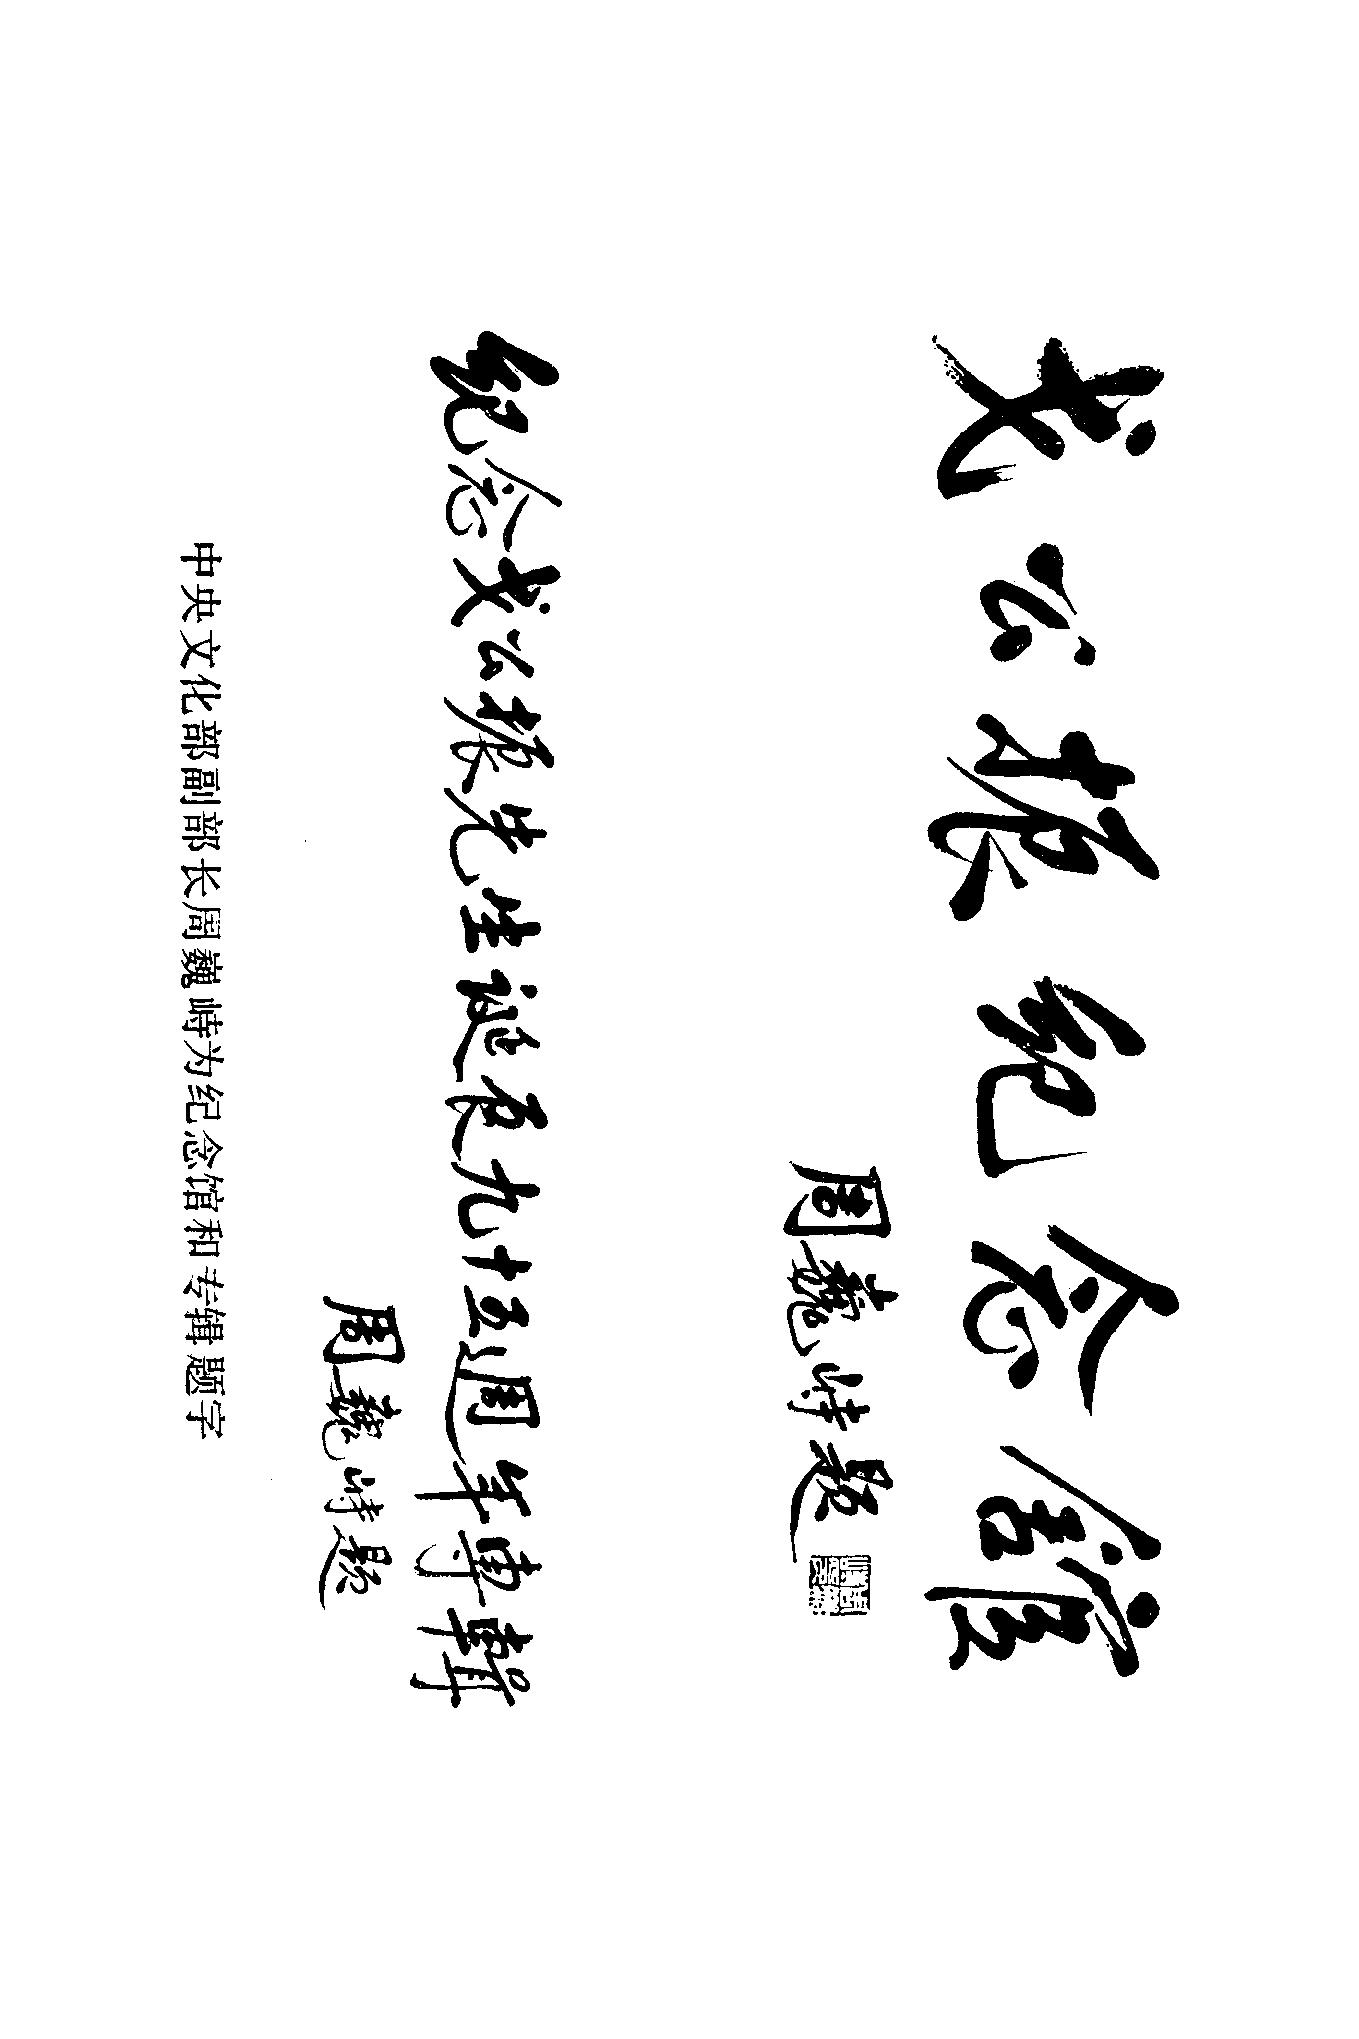 戈公振纪念館
周巍峙题
纪念戈公振先生诞辰九十五週年專輯
周巍峙题
中央文化部副部长周巍峙为纪念馆和专辑题字